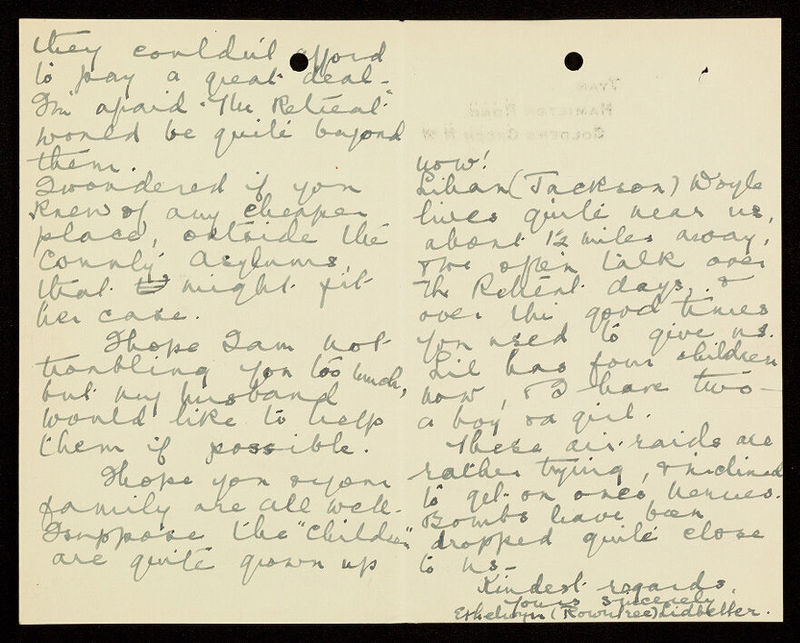 they couldn't afford
to pay a great deal -
I'm afraid "The Retreat"
would be quite beyond
them.
I wondered if you
knew of any cheaper
place, outside the
County Asylums,
that might fit
her case.
I hope I am not
troubling you too much,
but my husband
would like to help
them if possible.
I hope you & your
family are all well.
I suppose the "children"
are quite grown up
now!
Lilian (Jackson) Doyle
lives quite near us,
about 1½ miles away,
& we often talk over
the Retreat days, &
over the good times
you used to give us.
Lil has four children
now, & I have two -
a boy & a girl.
These air-raids are
rather trying, & inclined
to get on one's nerves.
Bombs have been
dropped quite close
to us -
Kindest regards,
Yours sincerely
Ethelwyn (Rowntree) Lidbetter.
HAMILTON ROAD
GOLDERS GREEN N.W.